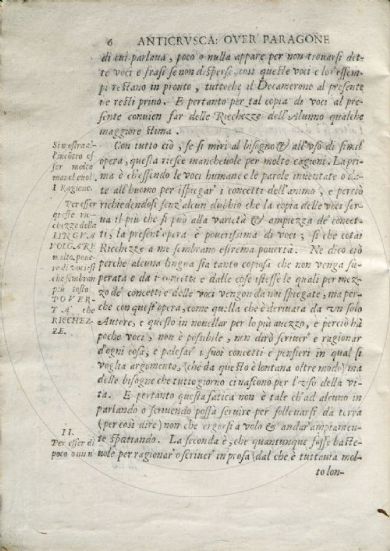 6 ANTICRVSCA: OVER PARAGONE
di cui parlaua, poco o nulla appare per non trouarsi det-
te voci e frasi se non disperse, con queste voci e lor essem-
pi restano in pronto, tutteche il Decamerone al presente
ve resti priuo. E pertanto per tal copia di voci al pre-
sente conuien far delle Ricchezze dell'Alunno qualche
maggiore stima.
Con tutto ciò, se si miri al bisogno & all'vso di simil
opera, questa riesce mancheuole per molte cagioni. La pri-
ma è ch'essendo le voci humane e le parole inuentate o da-
te all'huomo per ispiegar' i concetti dell'animo, e perciò
richiedendosi senz'alcun dubbio che la copia delle voci ser-
ua il più che si può alla varietà & ampiezza de' concet-
ti, la presente opera è pouerissima di voci; sì che cotai
Ricchezze a me sembrano estrema pouertà. Ne dico ciò
perche alcuna lingua sia tanto copiosa che non venga su-
perata e da i concetti e dalle cose istesse le quali per mez-
zo de' concetti e delle voci vengon da noi spiegate, ma per-
che con quest'opera, come quella che è deriuata da vn solo
Autore, e questo in nouellar per lo più auezzo, e perciò hà
poche voci, non è possibile, non dirò scriuer' e ragionar
d'ogni cosa, e palesar' i suoi concetti e pensieri in qual si
voglia argomento, (che da questo è lontana oltre modo) ma
delle bisogne che tutto giorno ci nascono per l'vso della vi-
ta. E pertanto questa fatica non è tale ch'ad alcuno in
parlando o scriuendo possa seruire per solleuarsi da terra
(per così dire) non che ergersi a volo & andar'ampiamen-
te spatiando. La seconda è, che quantunque fusse baste-
uole per ragionar' o scriuer' in prosa (dal che è tuttauia mol-
to lon-
Si mostra
l'Alunno es
ser molto
mancheuole
I Ragione.
Per esser
queste ric-
chezze della
LINGVA
VOLGARE
molto pouere
di voci si
che sembran
più tosto
POVER-
TA' che
RICCHEZ-
ZE.
II.
Per esser di
poco